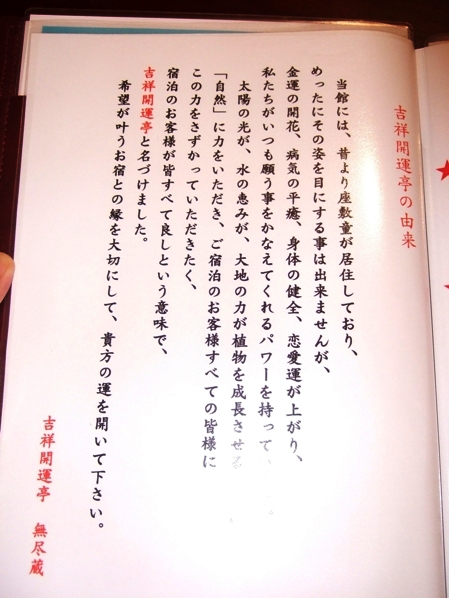 吉祥開運亭の由来
当館には、昔より座敷童が居住しており、
めったにその姿を目にする事は出来ませんが、
金運の開花、病気の平癒、身体の健全、恋愛運が上がり、
私たちがいつも願う事をかなえてくれるパワーを持って
太陽の光が、水の恵みが、大地の力が植物を成長させ
「自然」に力をいただき、ご宿泊のお客様すべての皆様に
この力をさずかっていただきたく、
宿泊のお客様が皆すべて良しという意味で、
吉祥開運亭と名づけました。
希望が叶うお宿との縁を大切にして、貴方の運を開いて下さい。
吉祥開運亭 無尽蔵